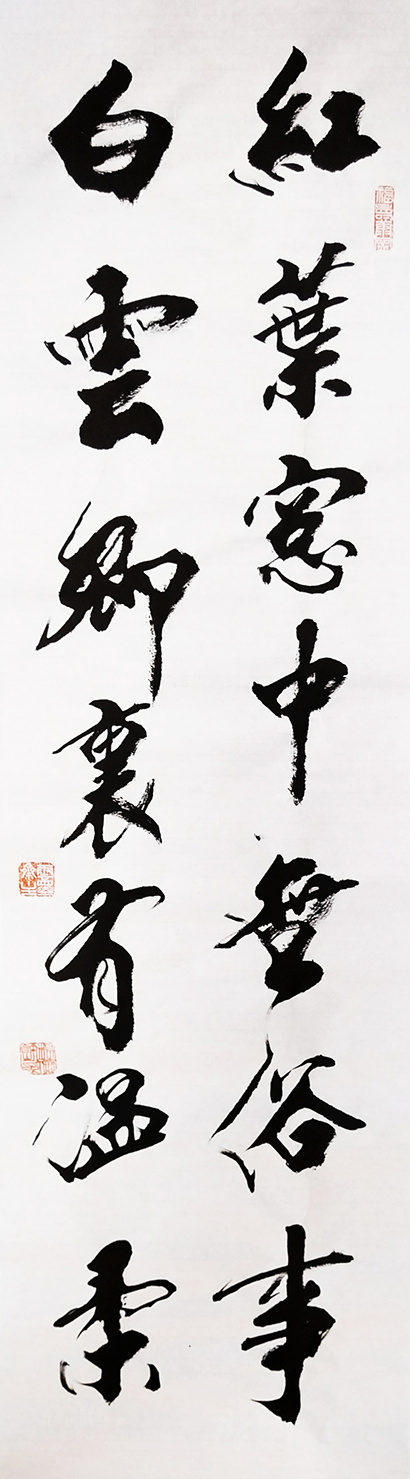 紅葉窓中無俗事
白雲卿裏有温柔